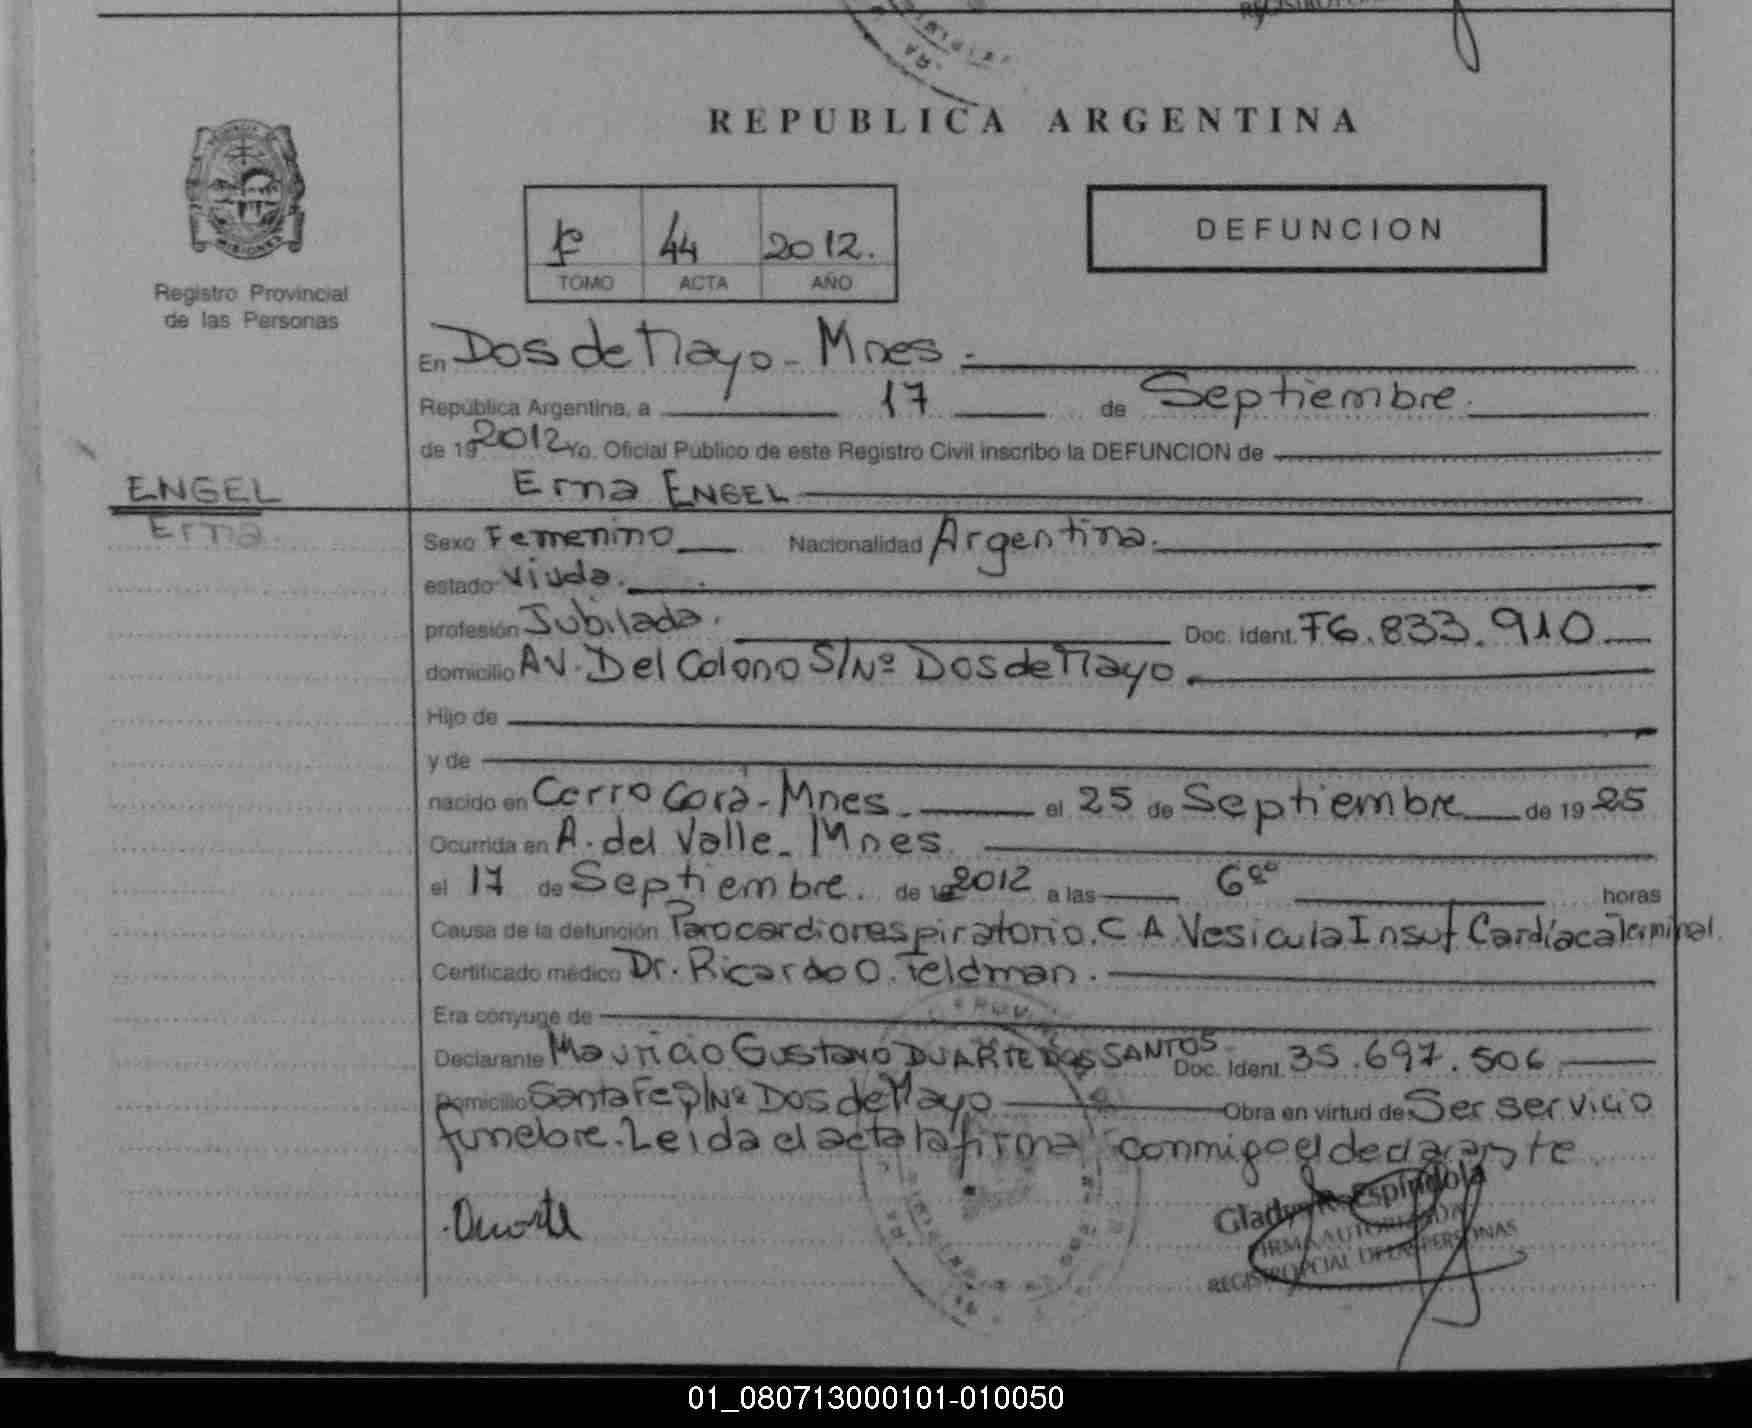 REPUBLICA ARGENTINA
MISIONES
Registro Provincial
de las Personas
44 2012.
TOMO ACTA AÑO
DEFUNCION
En Dos de Mayo - Mnes.
República Argentina, a 17 de Septiembre.
de 19 2012 Yo. Oficial Público de este Registro Civil inscribo la DEFUNCION de
Erna ENGEL
ENGEL
Erna
Sexo Femenino Nacionalidad Argentina.
estado Viuda.
profesión Jubilada. Doc. Ident. F6.833.910
domicilio AV. Del Colono S/Nº Dos de Mayo.
Hijo de
y de
nacido en Cerro Corá - Mnes. el 25 de Septiembre de 19 25
Ocurrida en A. del Valle - Mnes.
el 17 de Septiembre. de 2012 a las 6ºº horas
Causa de la defunción Parocardiorespiratorio. C A Vesicula Insuf Cardíaca terminal.
Certificado médico Dr. Ricardo O. Feldman.
Era conyuge de
Declarante Mauricio Gustavo DUARTE DOS SANTOS Doc. Ident. 35.697.506
Domicilio Santa Fe S/Nº Dos de Mayo Obra en virtud de Ser servicio
funebre. Leida el acta la firma conmigo el declarante.
Duarte
Gladys R. Espíndola
FIRMA AUTORIZADA
REGISTRO PCIAL DE LAS PERSONAS
01_080713000101-010050